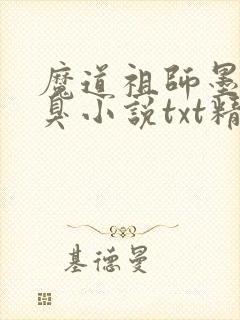 魔道祖師墨
臭小説txt精
基德曼